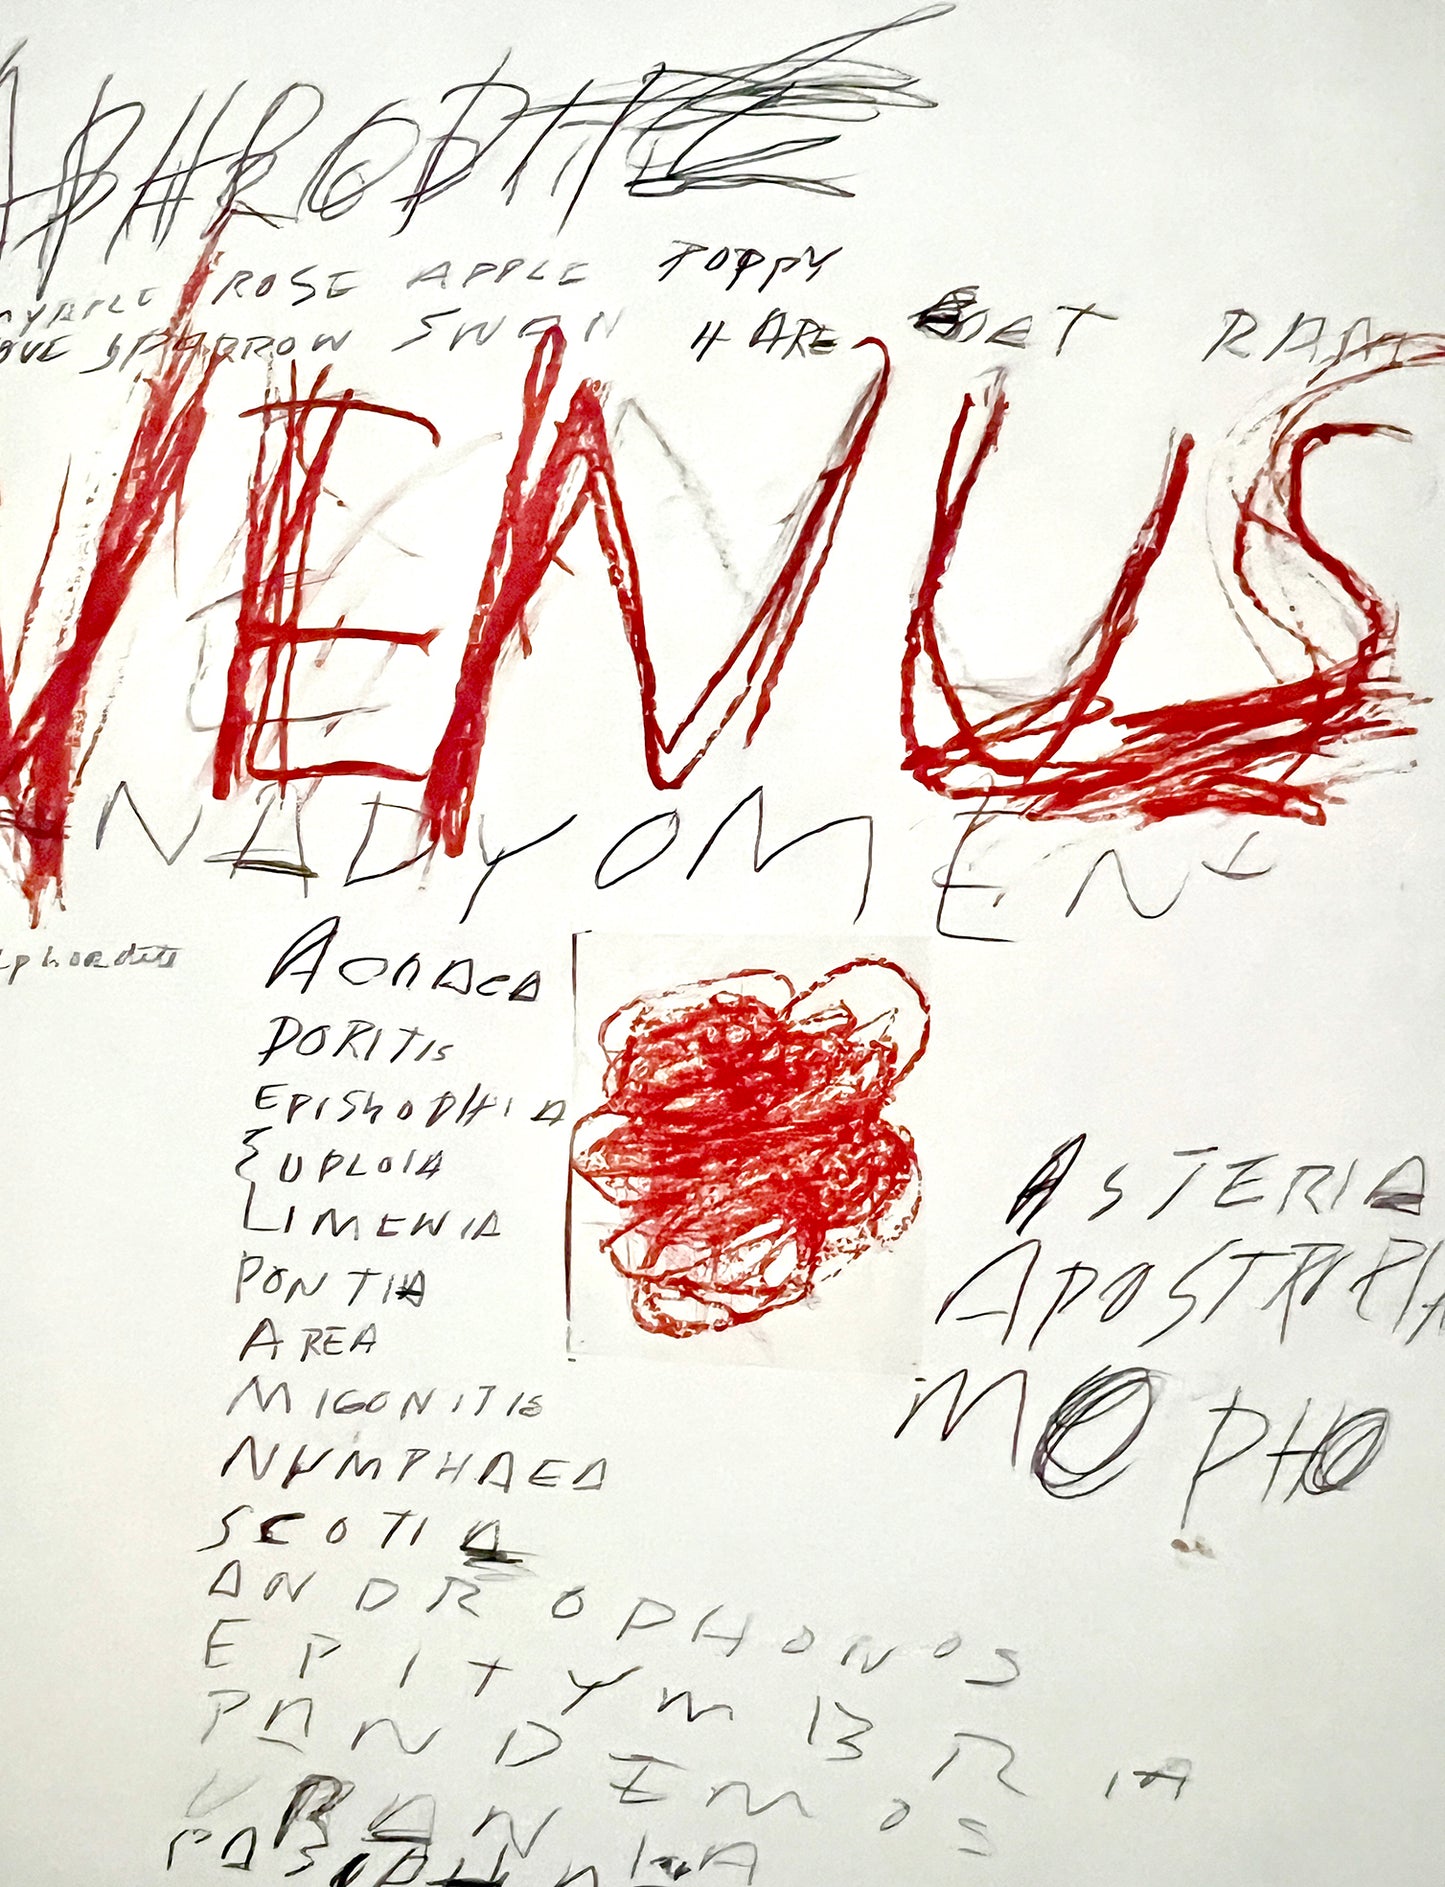 APHRODITE
ROSE APPLE POPPY
SPARROW SWAN HARE RAM
VENUS
NADYOMENE
AONAEA
DORITIS
EPISHOPHIA
EUPLOIA
LIMENIA
PONTIA
AREA
MIGONITIS
NYMPHAEA
SCOTIA
ANDROPHONOS
EPITYMBRIA
PANDEMOS
URANIA
ASTERIA
APOSTROPH
MOPHO